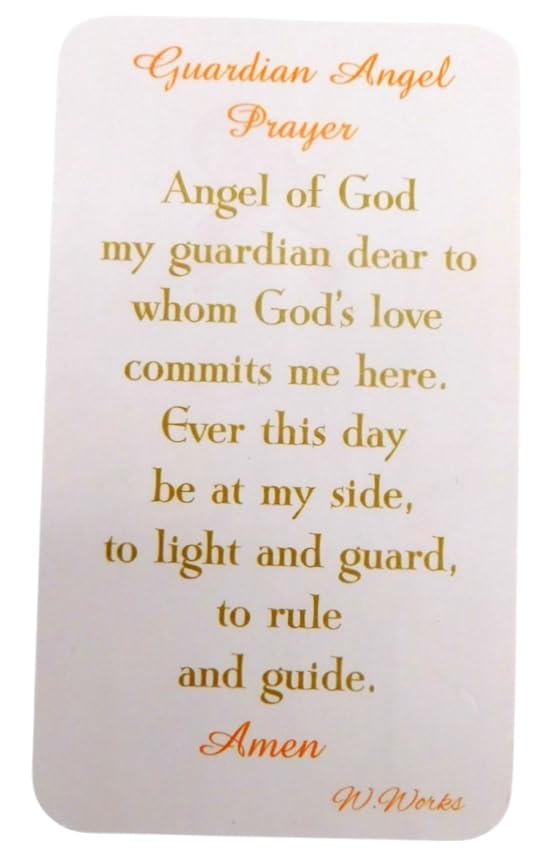 Guardian Angel
Prayer
Angel of God
my guardian dear to
whom God's love
commits me here.
Ever this day
be at my side,
to light and guard,
to rule
and guide.
Amen
W.Works